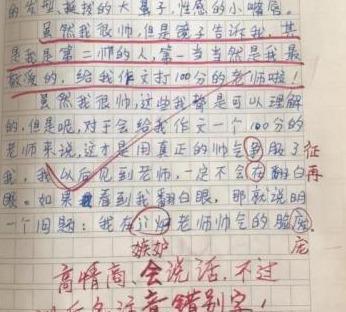 的发型,挺拔的大鼻子,性感的小嘴唇。
虽然我很帅,但是镜子告诉我,其
是我是第二帅的人,第一当当然是我最
敬爱的,给我作文打100分的老师啦!
虽然我很帅,这些我都是可以理解
的,但是呢,对于会给我作文一个100分的
老师来说,这才是用真正的帅气争服了 征
我,我以后见到老师,一定不会在翻白 再
眼。如果我看到我翻白眼,那就说明
一个问题:我在讠户老师帅气的脸庞。
嫉妒 庞
高情商,会说话,不过
以后多注意错别字!